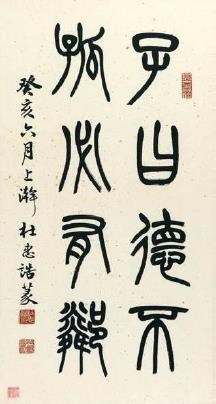 子曰德不
孤必有鄰
癸亥六月上澣 杜忠誥篆